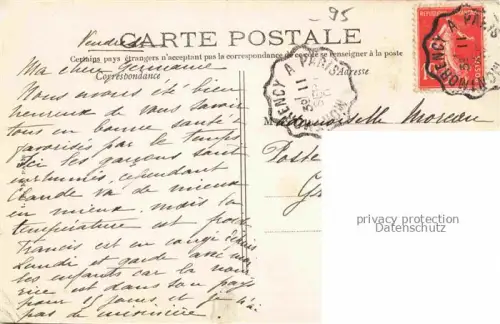 95
Vendredi
CARTE POSTALE
Certains pays étrangers n'acceptant pas la correspondance de ce côté se renseigner à la poste
Correspondance
Adresse
Ma chère Germaine
Nous avons été bien
heureux de vous savoir
tous en bonne santé
favorisés par le temps
Ici les garçons sont
enrhumés, cependant
Claude va de mieux
en mieux. mais la
température est froide
Francis est en congé
Lundi et garde avec moi
les enfants car la nour
rice est dans son pays
pour 15 jours, et je n'ai
pas de
MONTMORENCY A PARIS
11
MONTMORENCY A PARIS
11
Mademoiselle Moreau
Poste
privacy protection
Datenschutz